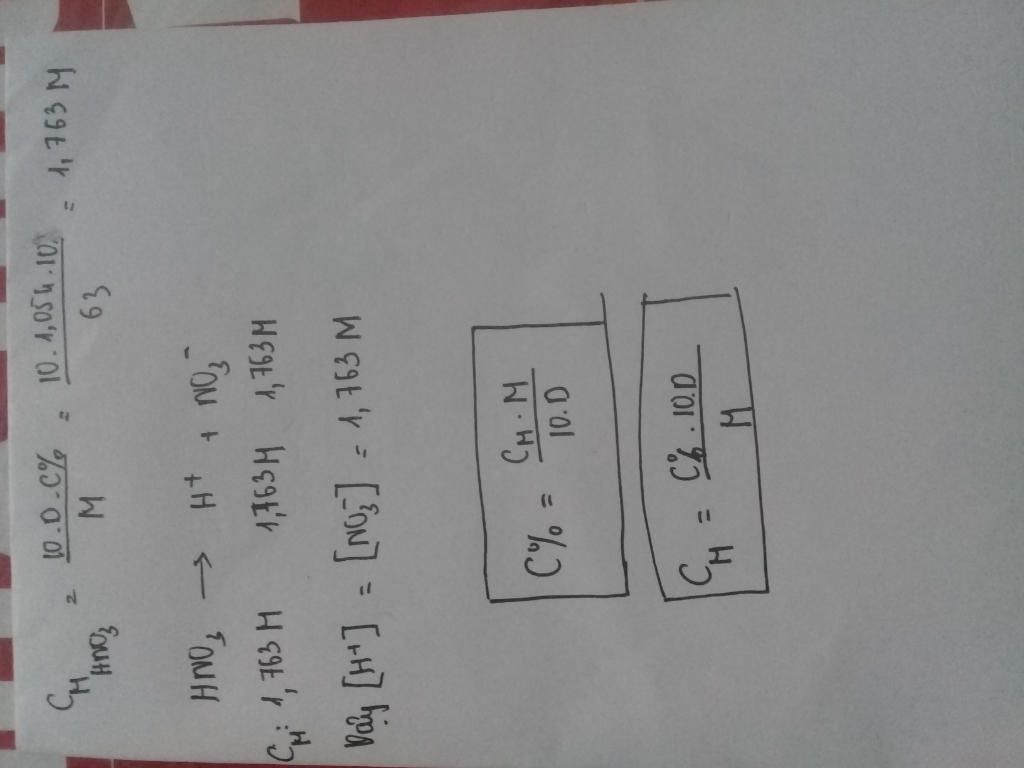 C_M HNO₃ = 10.D.C% / M = 10.1,054.10 / 63 = 1,763 M
HNO₃ → H⁺ + NO₃⁻
C_M: 1,763M 1,763M 1,763M
Vậy [H⁺] = [NO₃⁻] = 1,763 M
C% = C_M . M / 10.D
C_M = C% . 10.D / M